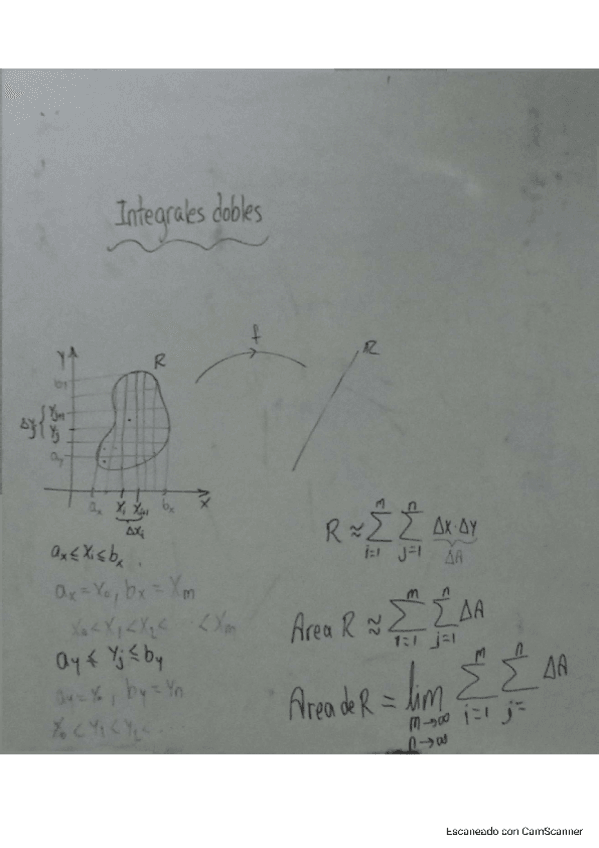 Integrales dobles
f
Y
R
ℝ
b_y
Δy_j { y_{j+1}
y_j
a_y
a_x x_i x_{i+1} b_x X
Δx_i
a_x ≤ x_i ≤ b_x
a_x = x_0, b_x = x_m
x_0 < x_1 < x_2 < < x_m
a_y ≤ y_j ≤ b_y
a_y = y_0, b_y = y_n
y_0 < y_1 < y_2 < .
R ≈ Σ_{i=1}^{m} Σ_{j=1}^{n} Δx·Δy
ΔA
Area R ≈ Σ_{i=1}^{m} Σ_{j=1}^{n} ΔA
Area de R = lim_{m→∞ n→∞} Σ_{i=1}^{m} Σ_{j=}^{n} ΔA
Escaneado con CamScanner